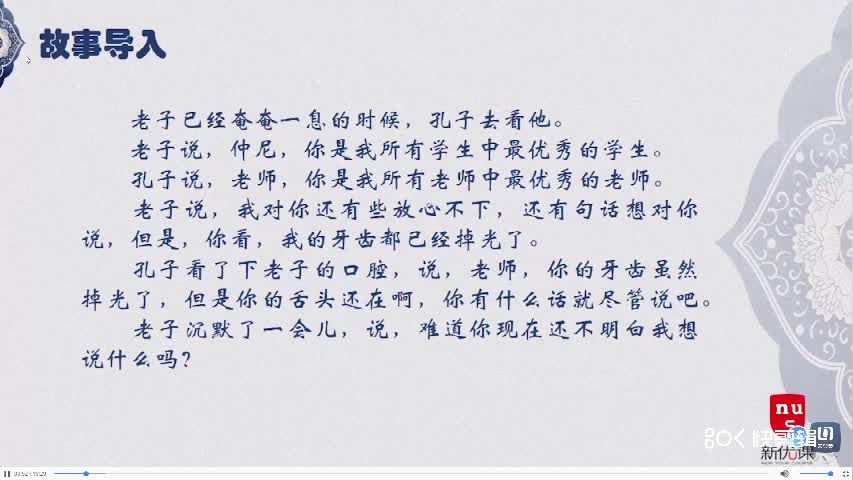 故事导入
老子已经奄奄一息的时候，孔子去看他。
老子说，仲尼，你是我所有学生中最优秀的学生。
孔子说，老师，你是我所有老师中最优秀的老师。
老子说，我对你还有些放心不下，还有句话想对你
说，但是，你看，我的牙齿都已经掉光了。
孔子看了下老子的口腔，说，老师，你的牙齿虽然
掉光了，但是你的舌头还在啊，你有什么话就尽管说吧。
老子沉默了一会儿，说，难道你现在还不明白我想
说什么吗？
nu
新优课